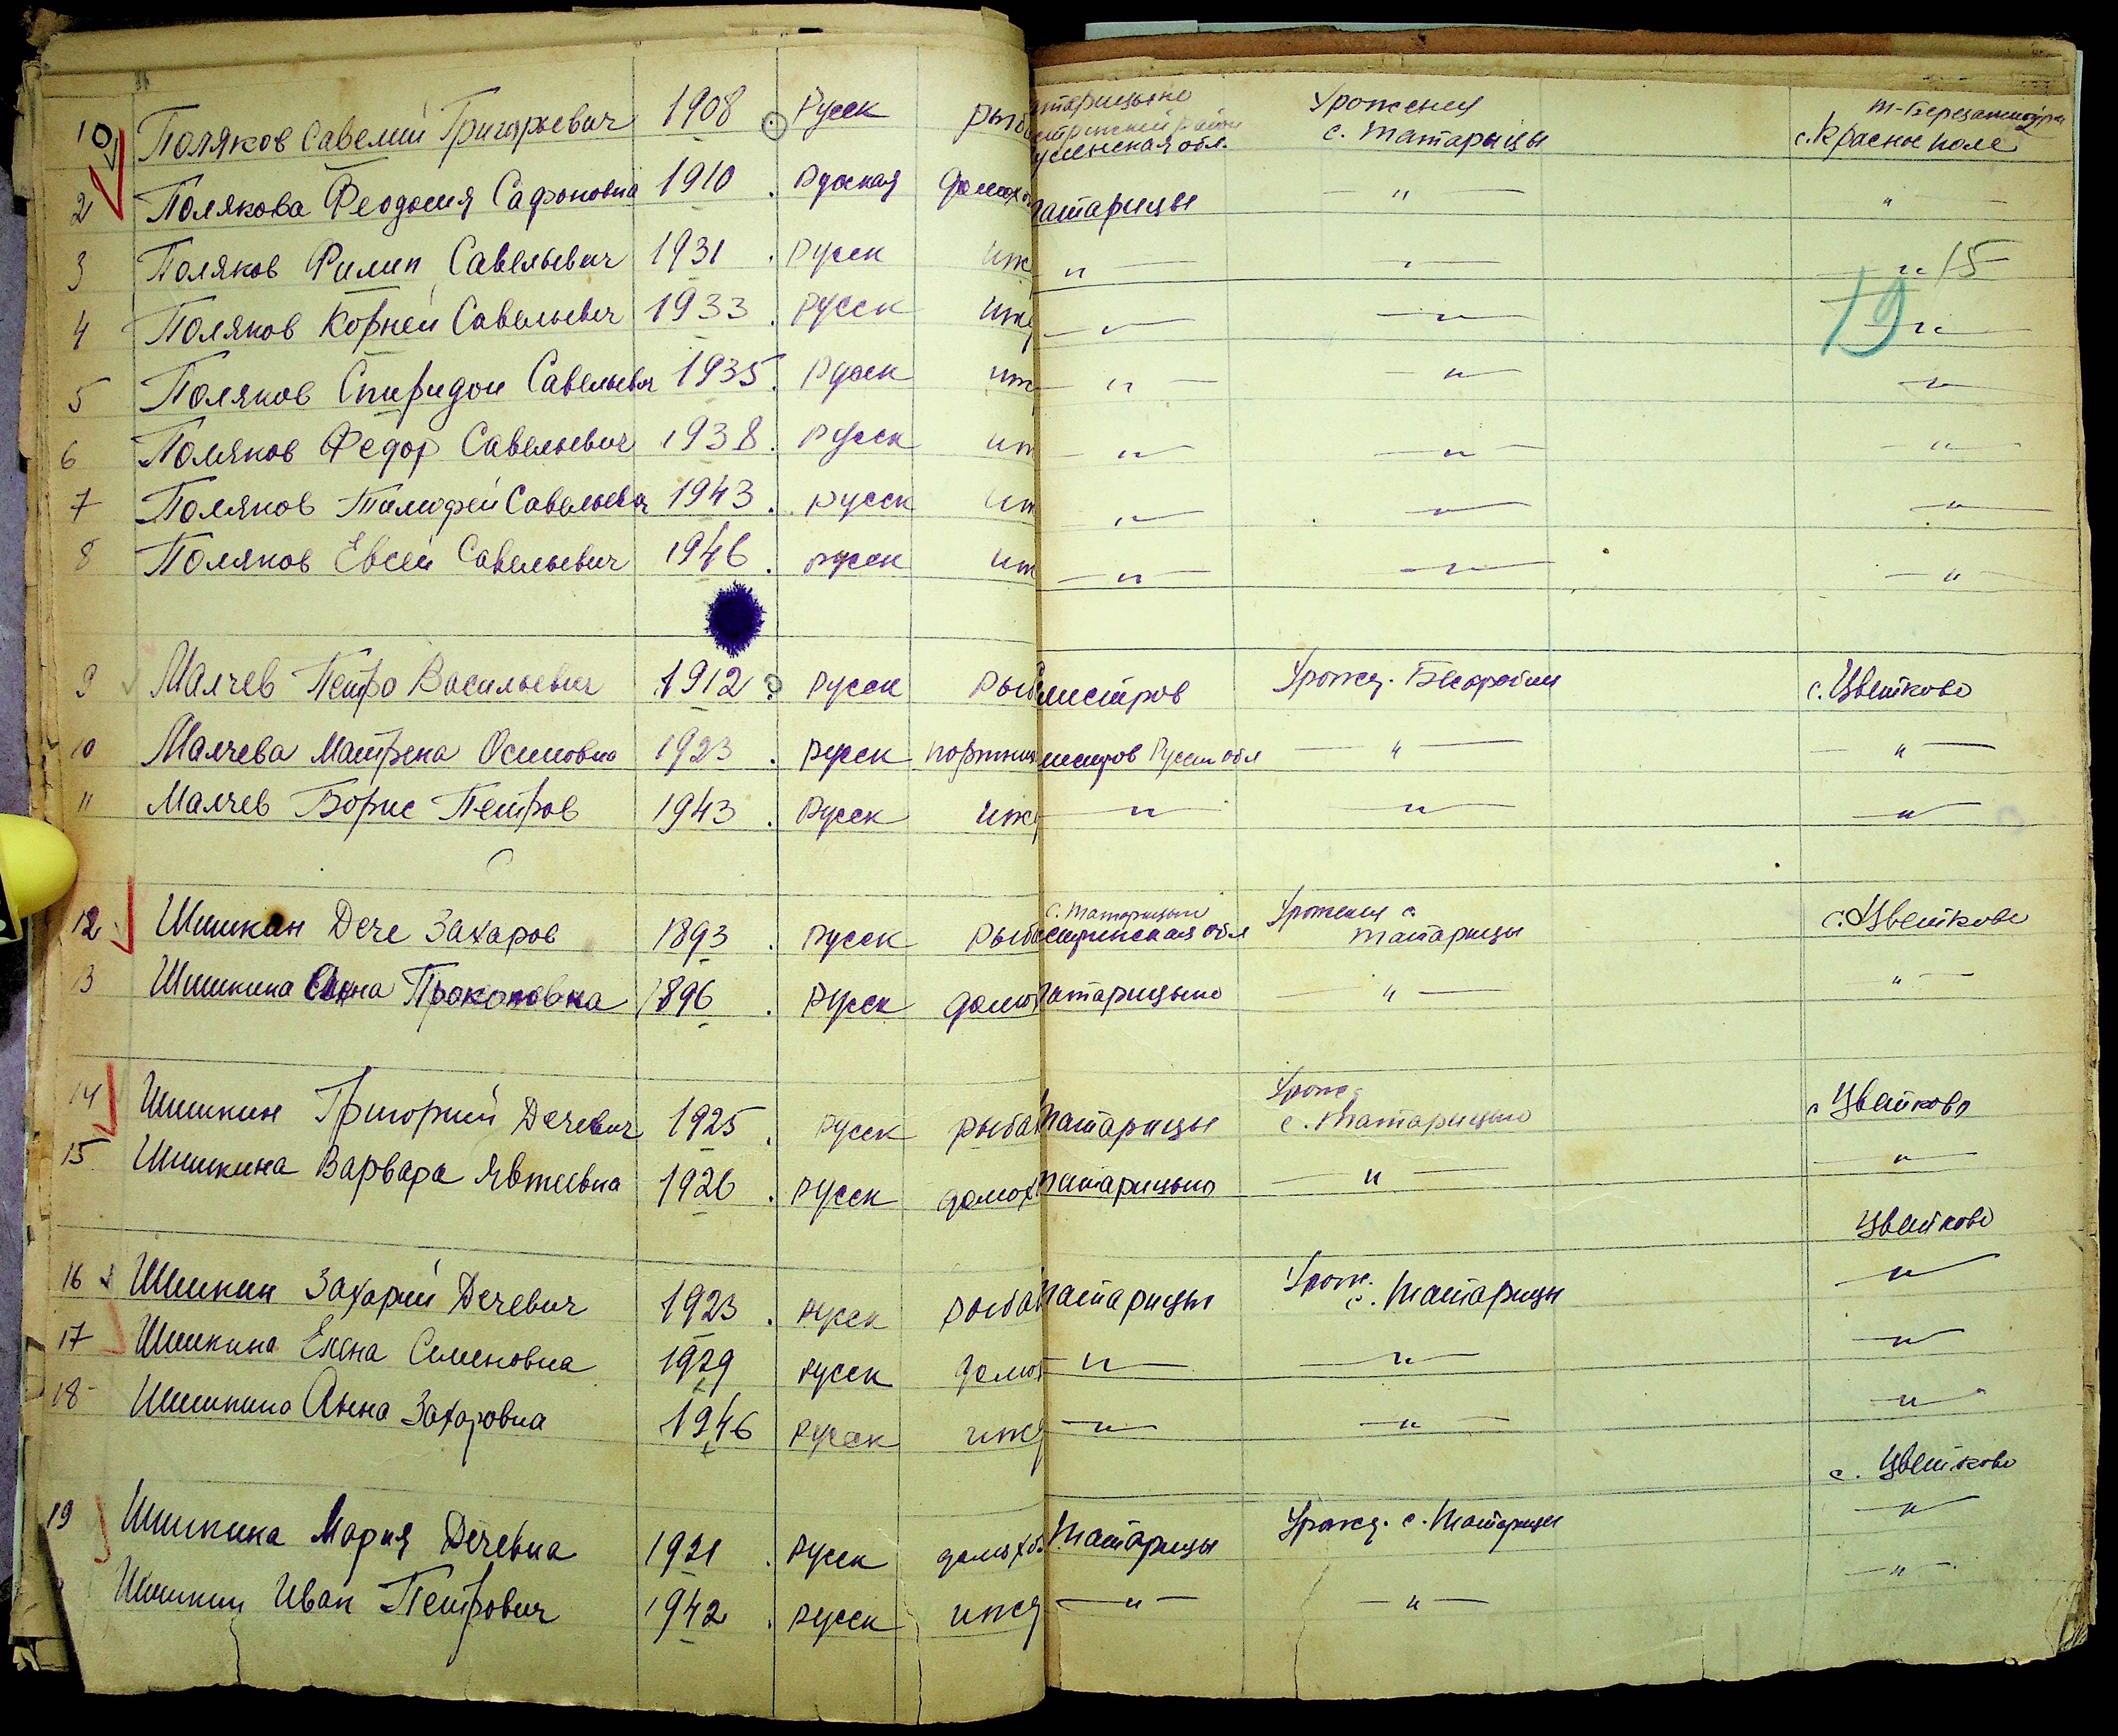 10 Поляков Савелий Григорьевич 1908 Русск Урожения с. Татарицы с. Красное поле
2 Полякова Феодосия Сафоновна 1910 Русская домохо Татарицы — " — "
3 Поляков Филип Савельевич 1931 Русск иж — " — — " — — " 15
19
4 Поляков Корней Савельевич 1933 Русск иж — " — — " — — " —
5 Поляков Спиридон Савельевич 1935 Русск иж — " — — " — — " —
6 Поляков Федор Савельевич 1938 Русск иж — " — — " — — " —
7 Поляков Тимофей Савельевич 1943 Русск иж — " — — " — — " —
8 Поляков Евсей Савельевич 1946 русск иж — " — — " — — " —
9 Малчев Петро Васильевич 1912 Русск рыб с. Цветково
10 Малчева Матрена Осиповна 1923 Русск — " — — " —
11 Малчев Борис Петров 1943 Русск ижд — " — — " — — " —
12 Шишкин Дече Захаров 1893 Русск рыба Урожения с. Татарицы с. Цветково
13 Шишкина Прокоповна 1896 Русск домох Татарицыно — " — " —
14 Шишкин Григорий Дечевич 1925 Русск рыба Татарицы Урож. с. Татарицыно с Цветково
15 Шишкина Варвара Явтеевна 1926 Русск домох Татарицыно — " — — " —
Цветково
16 Шишкин Захарий Дечевич 1923 Русск рыба Татарицы Урож. с. Татарицы — " —
17 Шишкина Елена Семеновна 1929 Русск домох — " — — " — — " —
18 Шишкина Анна Захаровна 1946 Русск ижд — " — — " — — " —
с. Цветково
19 Шишкина Мария Дечевна 1921 Русск домохо Татарицы Урожд. с. Татарицы — " —
Шишкин Иван Петрович 1942 Русск ижд — " — — " — — " —